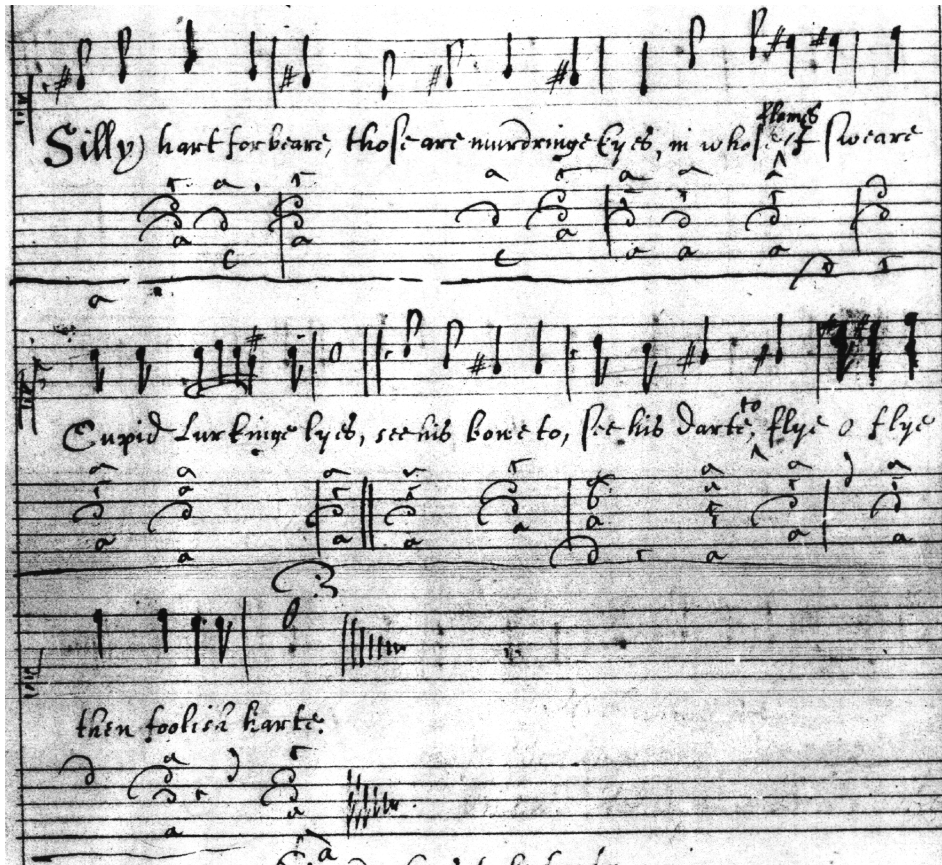 Silly hart forbeare, those are murdringe Eyes, in whose flames I sweare
Cupid Lurkinge lyes, see his bowe to, see his darte to, flye o flye
then foolish harte.